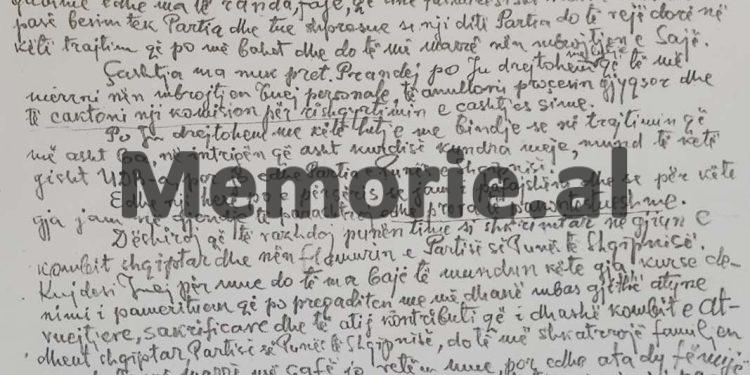 pasë besim tek Partia dhe tue shpresue se nji ditë Partia do të vejë dorë në
këtë trajtim që po më bahet dhe do të më marrë nën mbrojtjen e Sajë.
Çashtja ma nuk pret. Prandej po Ju drejtohem që të më
merrni nën mbrojtjen Tuej personale, të anulloni proçesin gjyqsor dhe
të caktoni nji komision për rishqyrtimin e çashtjes sime.
Po Ju drejtohem me këtë lutje me bindje se në trajtimin që
më asht ba, në intrigën që asht kurdisë kundra meje, mund të ketë
gisht UDB-a por jo edhe Partia e Punës e Shqipnisë.
Edhe nji herë po e përsëris se jam i pafajshëm dhe se për këte
gja jam në gjendje të
Memorie.al
Dëshiroj që të vazhdoj punën time si shkrimtar në gjiun e
kombit shqiptar dhe nën flamurin e Partisë së Punës të Shqipnisë.
Kujdesi Tuej për mue do të ma bajë të mundun këte gja, kurse dë-
nimi i pamerituem që po pregaditen me më dhanë mbas gjithë atyne
vuejtjeve, sakrificave dhe të atij kontributi që i dhashë kombit e At-
dheut shqiptar Partisë së Punës të Shqipnisë, do të më shkatrrojë familjen
më qafë jo vetëm mue, por edhe ata dy fëmijë